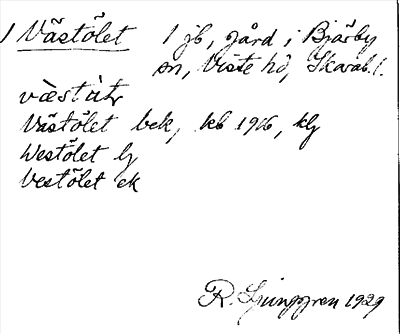 1 Västölet 1 jb, gård i Bjärby
sn, Viste hd, Skarab. l.
væ̀stùtr
Västölet bek, kb 1916, klg
Westölet lj
Vestölet ek
R. Ljunggren 1929